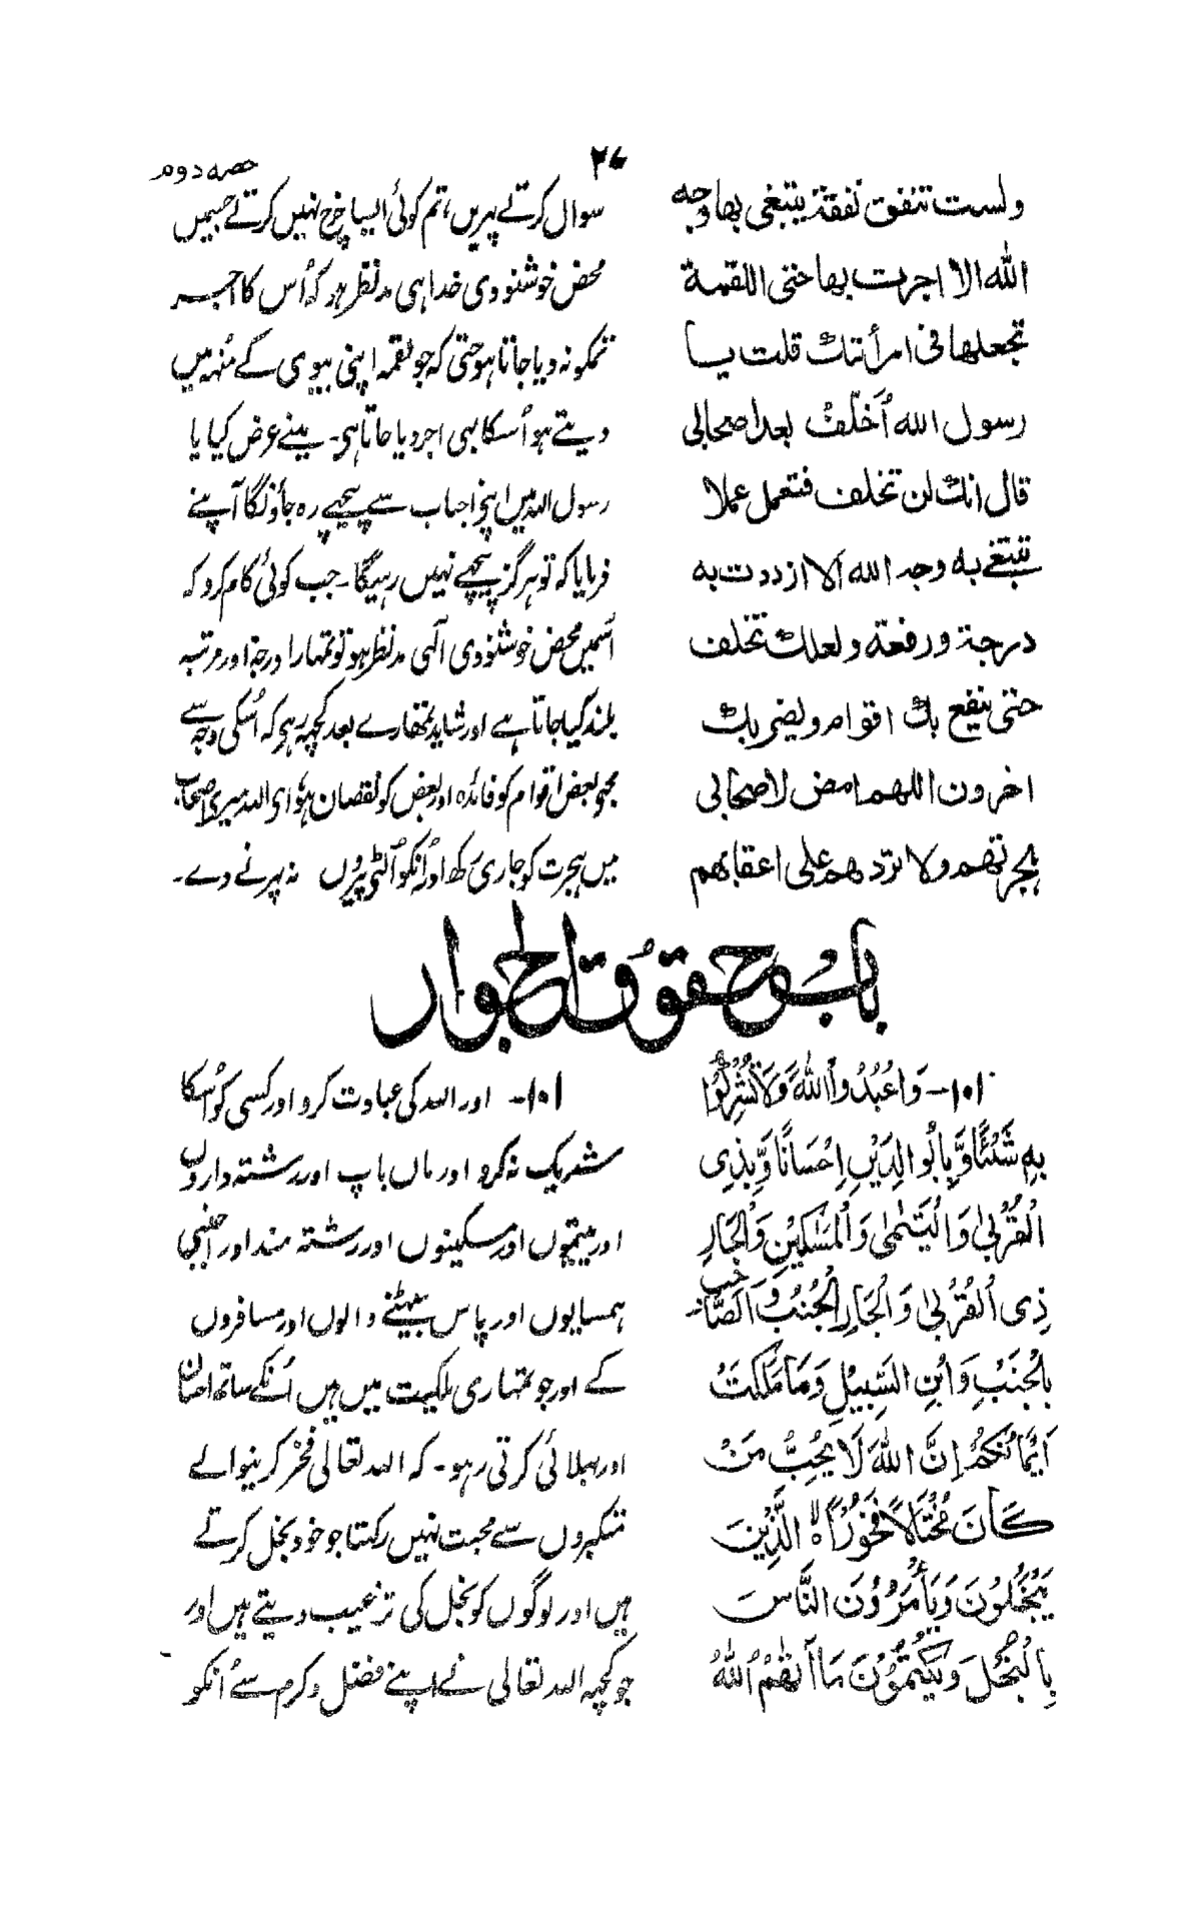 ۲۷
حصہ دوم
ولست تنفق نفقة یبتغی بھا وجه
الله الا اجرت بھا حتی اللقمة
تجعلھا فی امرأتك قلت یا
رسول الله أخلّف بعد اصحابی
قال انك لن تخلف فتعمل عملا
تبتغی به وجه الله الا ازددت به
درجة ورفعة ولعلك تخلف
حتی ینفع بك اقوام ویضر بك
اخرون اللھم امض لاصحابی
ھجرتھم ولا تردھم علی اعقابھم
سوال کرتے پہریں، تم کوئی ایسا خرچ نہیں کرتے جسمیں
محض خوشنودی خدا ہی مدنظر ہو کہ اُس کا اجر
تمکو نہ دیا جاتا ہو حتی کہ جو لقمہ اپنی بیوی کے مُنہہ میں
دیتے ہو اُسکا بہی اجر دیا جاتا ہی۔ مینے عرض کیا یا
رسول اللہ میں اپنے احباب سے پیچھے رہ جاؤنگا آپنے
فرمایا کہ تو ہرگز پیچھے نہیں رہیگا۔ جب کوئی کام کرو کہ
اُسمیں محض خوشنودی آلہی مدنظر ہو تو تمہارا درجہ اور مرتبہ
بلند کیا جاتا ہے اور شاید تمھارے بعد کچھہ رہی کہ اُسکی وجہ سے
بعض اقوام کو فائدہ اور بعض کو نقصان ہو، ای اللہ میری اصحاب
میں ہجرت کو جاری رکھ اور اُنکو اُلٹی پیروں نہ پہرنے دے۔
باب حقوق الجوار
۱۰۱- وَاعْبُدُوا اللّٰهَ وَلَا تُشْرِكُوْا
بِهٖ شَيْئًا وَّبِالْوَالِدَيْنِ اِحْسَانًا وَّبِذِى
الْقُرْبٰى وَالْيَتٰمٰى وَالْمَسٰكِيْنِ وَالْجَارِ
ذِى الْقُرْبٰى وَالْجَارِ الْجُنُبِ وَالصَّاحِبِ
بِالْجَنْبِ وَابْنِ السَّبِيْلِ وَمَا مَلَكَتْ
اَيْمَانُكُمْ اِنَّ اللّٰهَ لَا يُحِبُّ مَنْ
كَانَ مُخْتَالًا فَخُوْرًا ۙ الَّذِيْنَ
يَبْخَلُوْنَ وَيَأْمُرُوْنَ النَّاسَ
بِالْبُخْلِ وَيَكْتُمُوْنَ مَا اٰتٰهُمُ اللّٰهُ
۱۰۱- اور اللہ کی عبادت کرو اور کسی کو اُسکا
شریک نہ کرو اور ماں باپ اور رشتہ داروں
اور یتیموں اور مسکینوں اور رشتہ مند اور اجنبی
ہمسایوں اور پاس بیٹھنے والوں اور مسافروں
کے اور جو تمہاری ملکیت میں ہیں اُنکے ساتھ احسان
اور بہلائی کرتی رہو۔ کہ اللہ تعالٰی فخر کرینوالے
متکبروں سے محبت نہیں رکہتا جو خود بخل کرتے
ہیں اور لوگوں کو بخل کی ترغیب دیتے ہیں اور
جو کچھہ اللہ تعالی نے اپنے فضل وکرم سے اُنکو